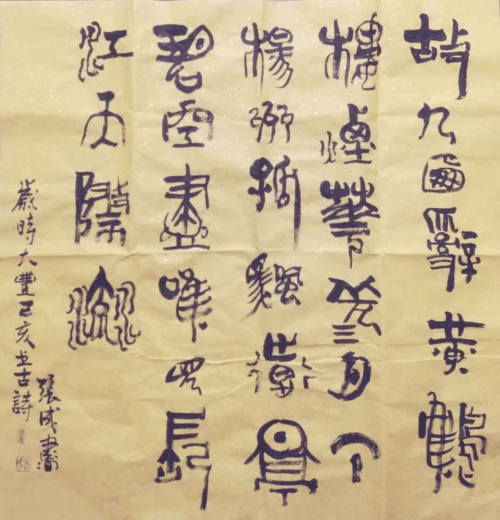 故人西辭黃鶴
樓煙華三月下
楊州孤颿遠景
碧空盡唯見長
江天際流
歲時大豐己亥书古詩
張成書